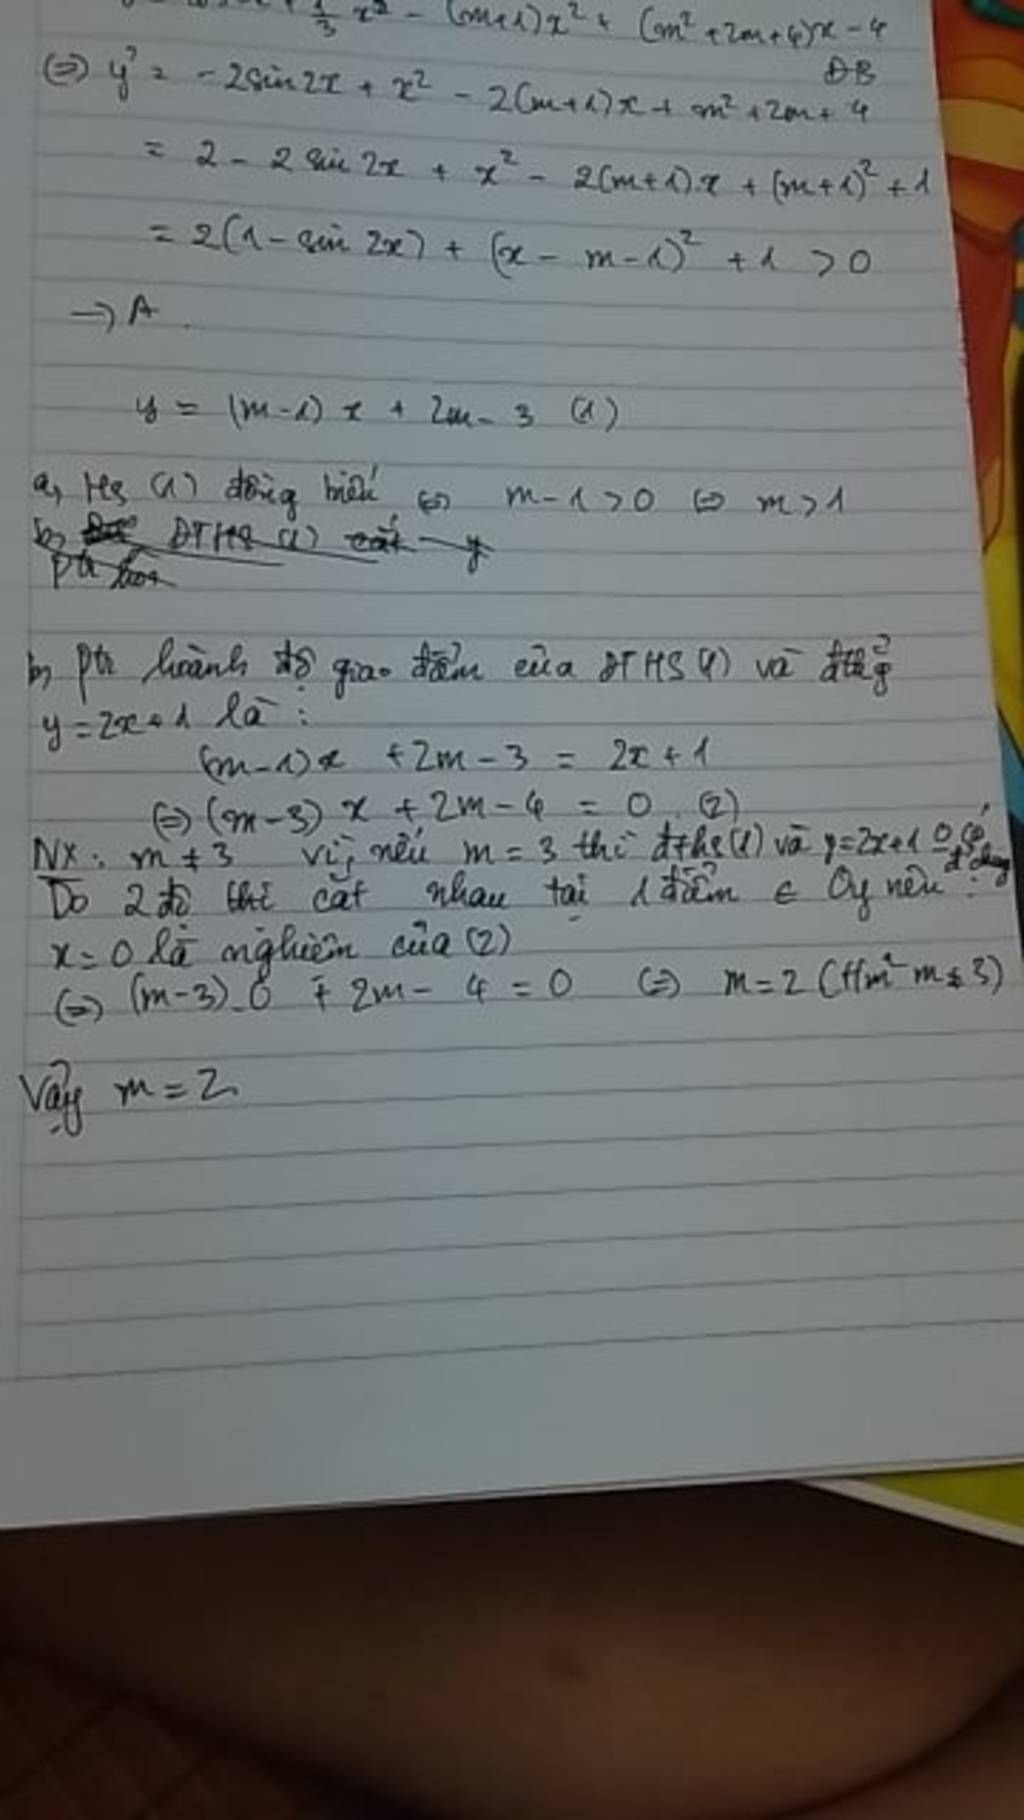 1/3 x³ - (m+1)x² + (m²+2m+4)x - 4
ĐB
(=) y' = -2sin2x + x² - 2(m+1)x + m² + 2m + 4
= 2 - 2 sin 2x + x² - 2(m+1)x + (m+1)² + 1
= 2(1 - sin 2x) + (x - m - 1)² + 1 > 0
→ A
y = (m-1) x + 2m - 3 (1)
a, Hs (1) đồng biến (=) m - 1 > 0 (=) m > 1
b, ĐTHS (1) cắt y
Ptr hoà
b, Ptr hoành độ giao điểm của ĐTHS (1) và đtg
y = 2x + 1 là :
(m-1)x + 2m - 3 = 2x + 1
(=) (m-3) x + 2m - 4 = 0 (2)
NX: m ≠ 3 vì, nếu m = 3 thì đths (1) và y = 2x+1 0 có
đ chung
Do 2 đồ thị cắt nhau tại 1 điểm ∈ Oy nên :
x = 0 là nghiệm của (2)
(=) (m-3).0 + 2m - 4 = 0 (=) m = 2 (t/m² m ≠ 3)
Vậy m = 2.